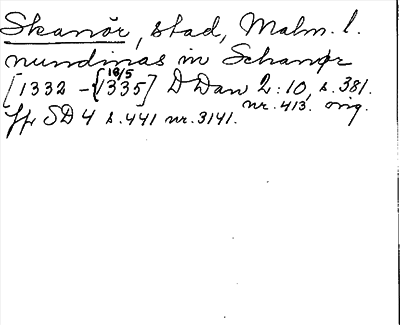 Skanör, stad, Malm. l.
nundinas in Schanør
[1332 – {18/5 1335] DDan 2:10, s. 381.
nr. 413. orig.
Jfr SD 4 s. 441 nr. 3141.